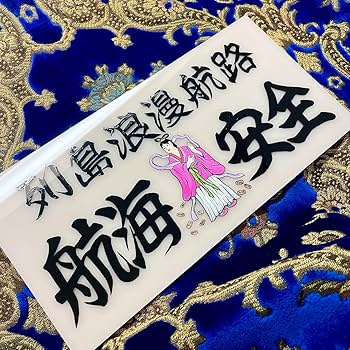 列島浪漫航路
航海 安全